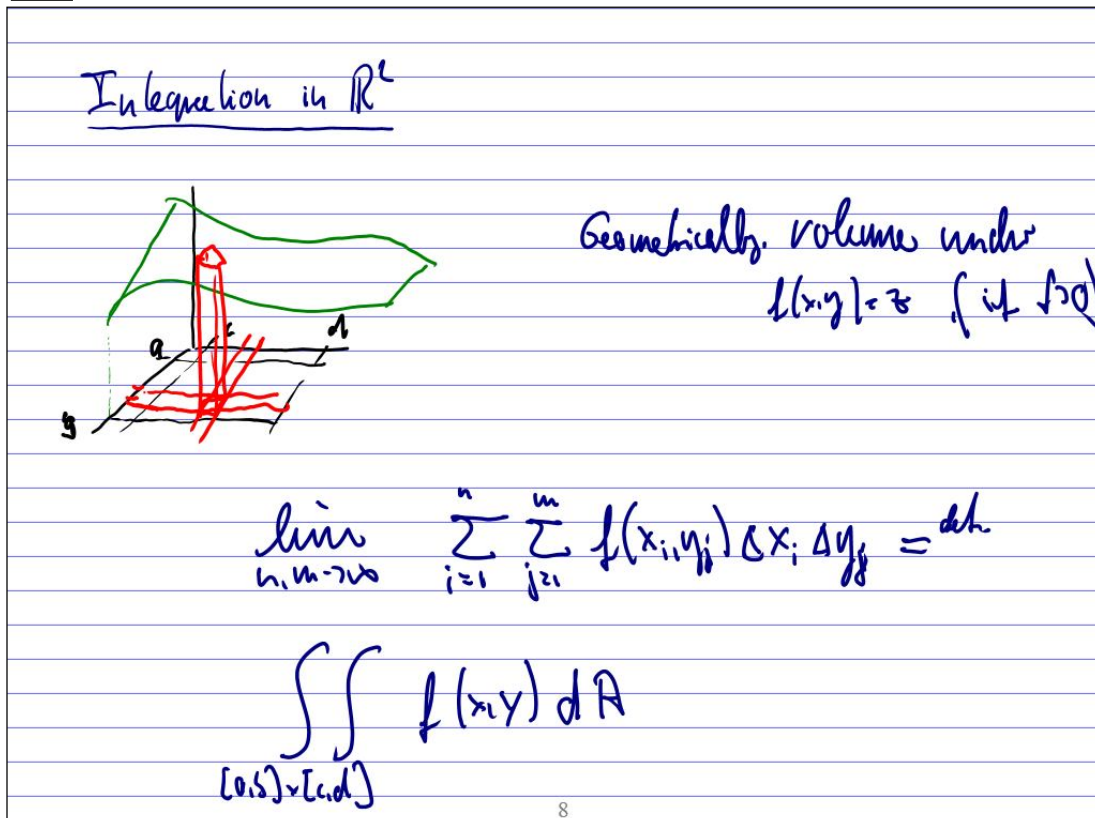 Integration in ℝ²
Geometrically. volume under
f(x,y)=z (if f>0)
a c d
b
lim n,m->∞ Σ i=1 n Σ j=1 m f(x_i,y_j) Δx_i Δy_j = def.
∫∫ [a,b]×[c,d] f(x,y) dA
8